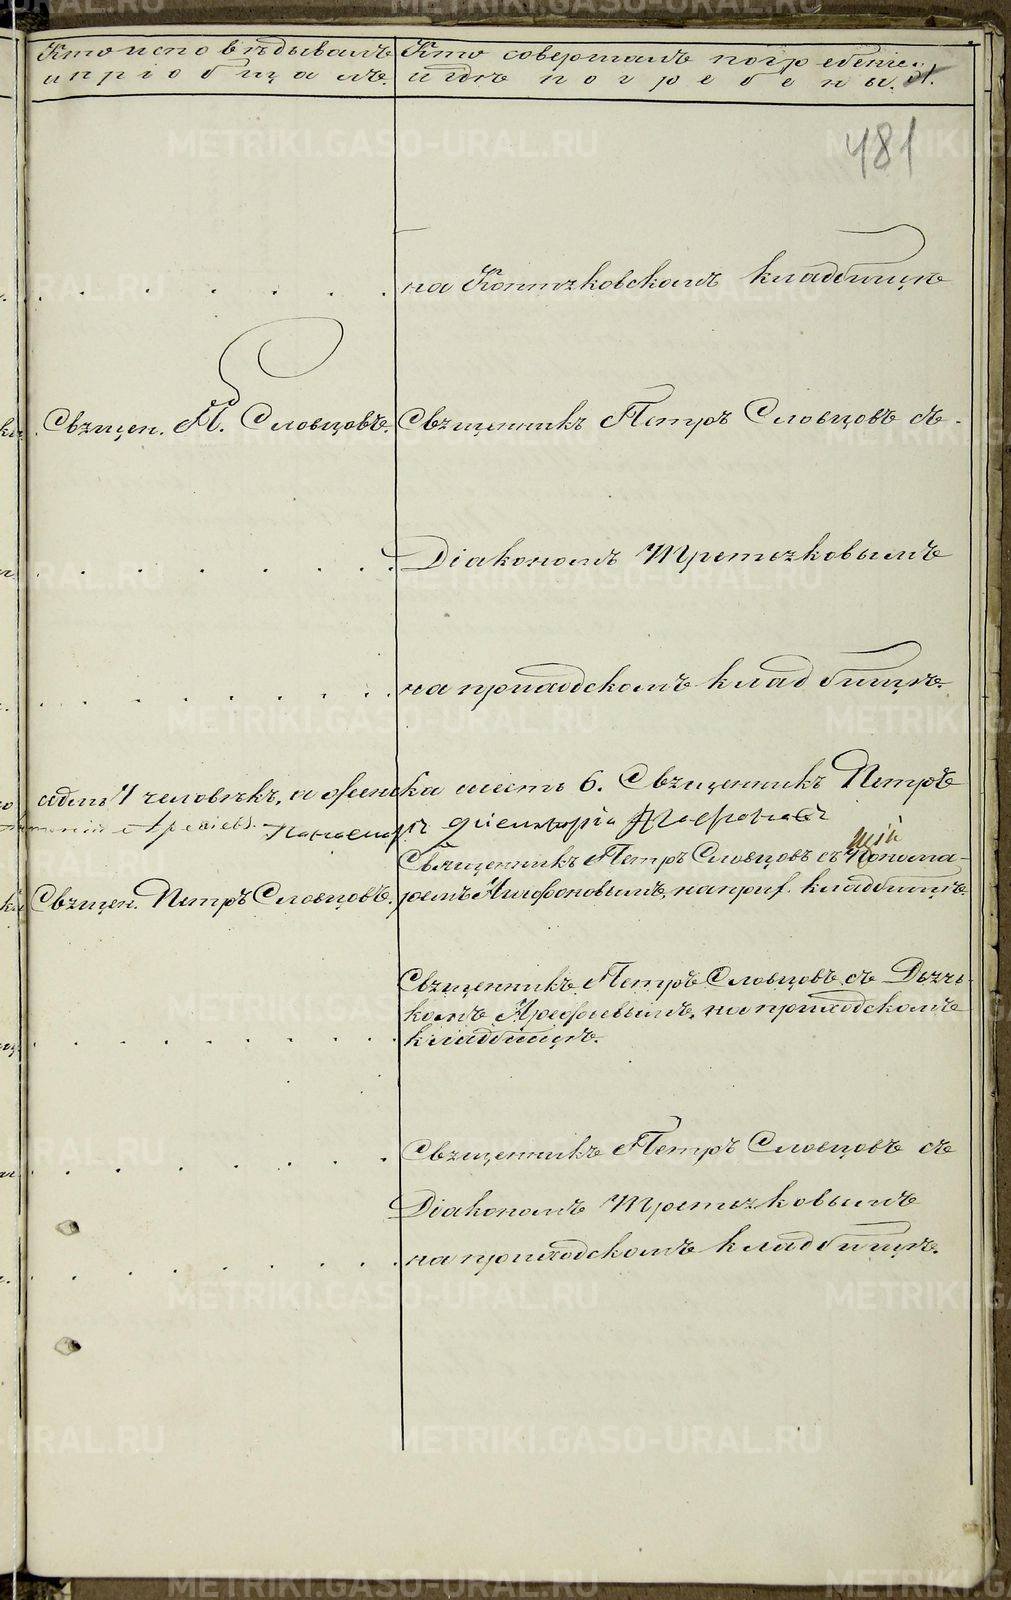 Кто исповѣдывалъ
и пріобщалъ.
Кто совершалъ погребеніе
и гдѣ погребены.
481
на Коптяковскомъ кладбищѣ
Священ. П. Словцовъ.
Священникъ Петръ Словцовъ съ
Діакономъ Третьяковымъ
на приходскомъ кладбищѣ.
человѣкъ, а женска шесть 6. Священникъ Петръ
Священникъ Петръ Словцовъ съ Понома-
Священ. Петръ Словцовъ.
ремъ на прих. кладбищѣ.
Священникъ Петръ Словцовъ съ Дьяч-
комъ Арефьевымъ, на приходскомъ
кладбищѣ.
Священникъ Петръ Словцовъ съ
Діакономъ Третьяковымъ
на приходскомъ кладбищѣ.
METRIKI.GASO-URAL.RU